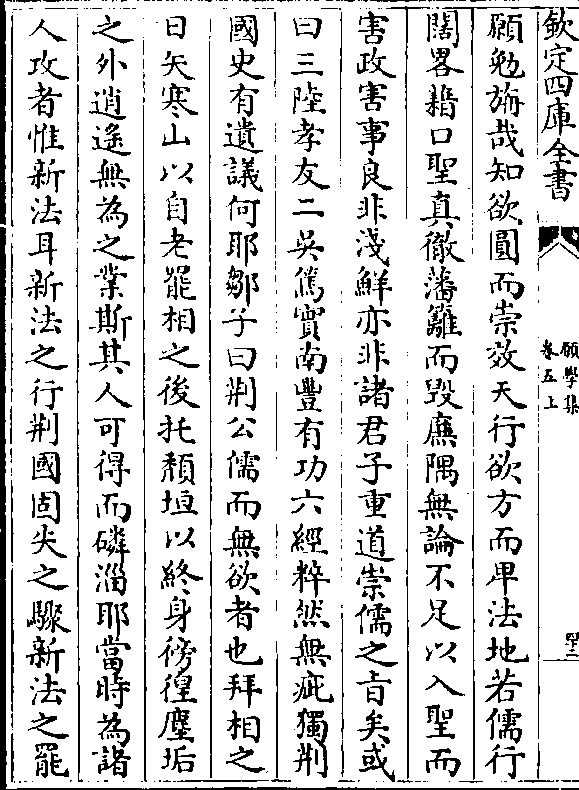 欽定四庫全書
願學集
卷五上
四十二
願勉旃哉知欲圓而崇效天行欲方而卑法地若儒行
闊畧藉口聖真徹藩籬而毀廉隅無論不足以入聖而
害政害事良非淺鮮亦非諸君子重道崇儒之旨矣或
曰三陸孝友二吳篤實南豐有功六經粹然無疵獨荆
國史有遺議何耶鄒子曰荆公儒而無欲者也拜相之
日矢寒山以自老罷相之後托頽垣以終身徬徨塵垢
之外逍遙無為之業斯其人可得而磷淄耶當時為諸
人攻者惟新法耳新法之行荆國固失之驟新法之罷